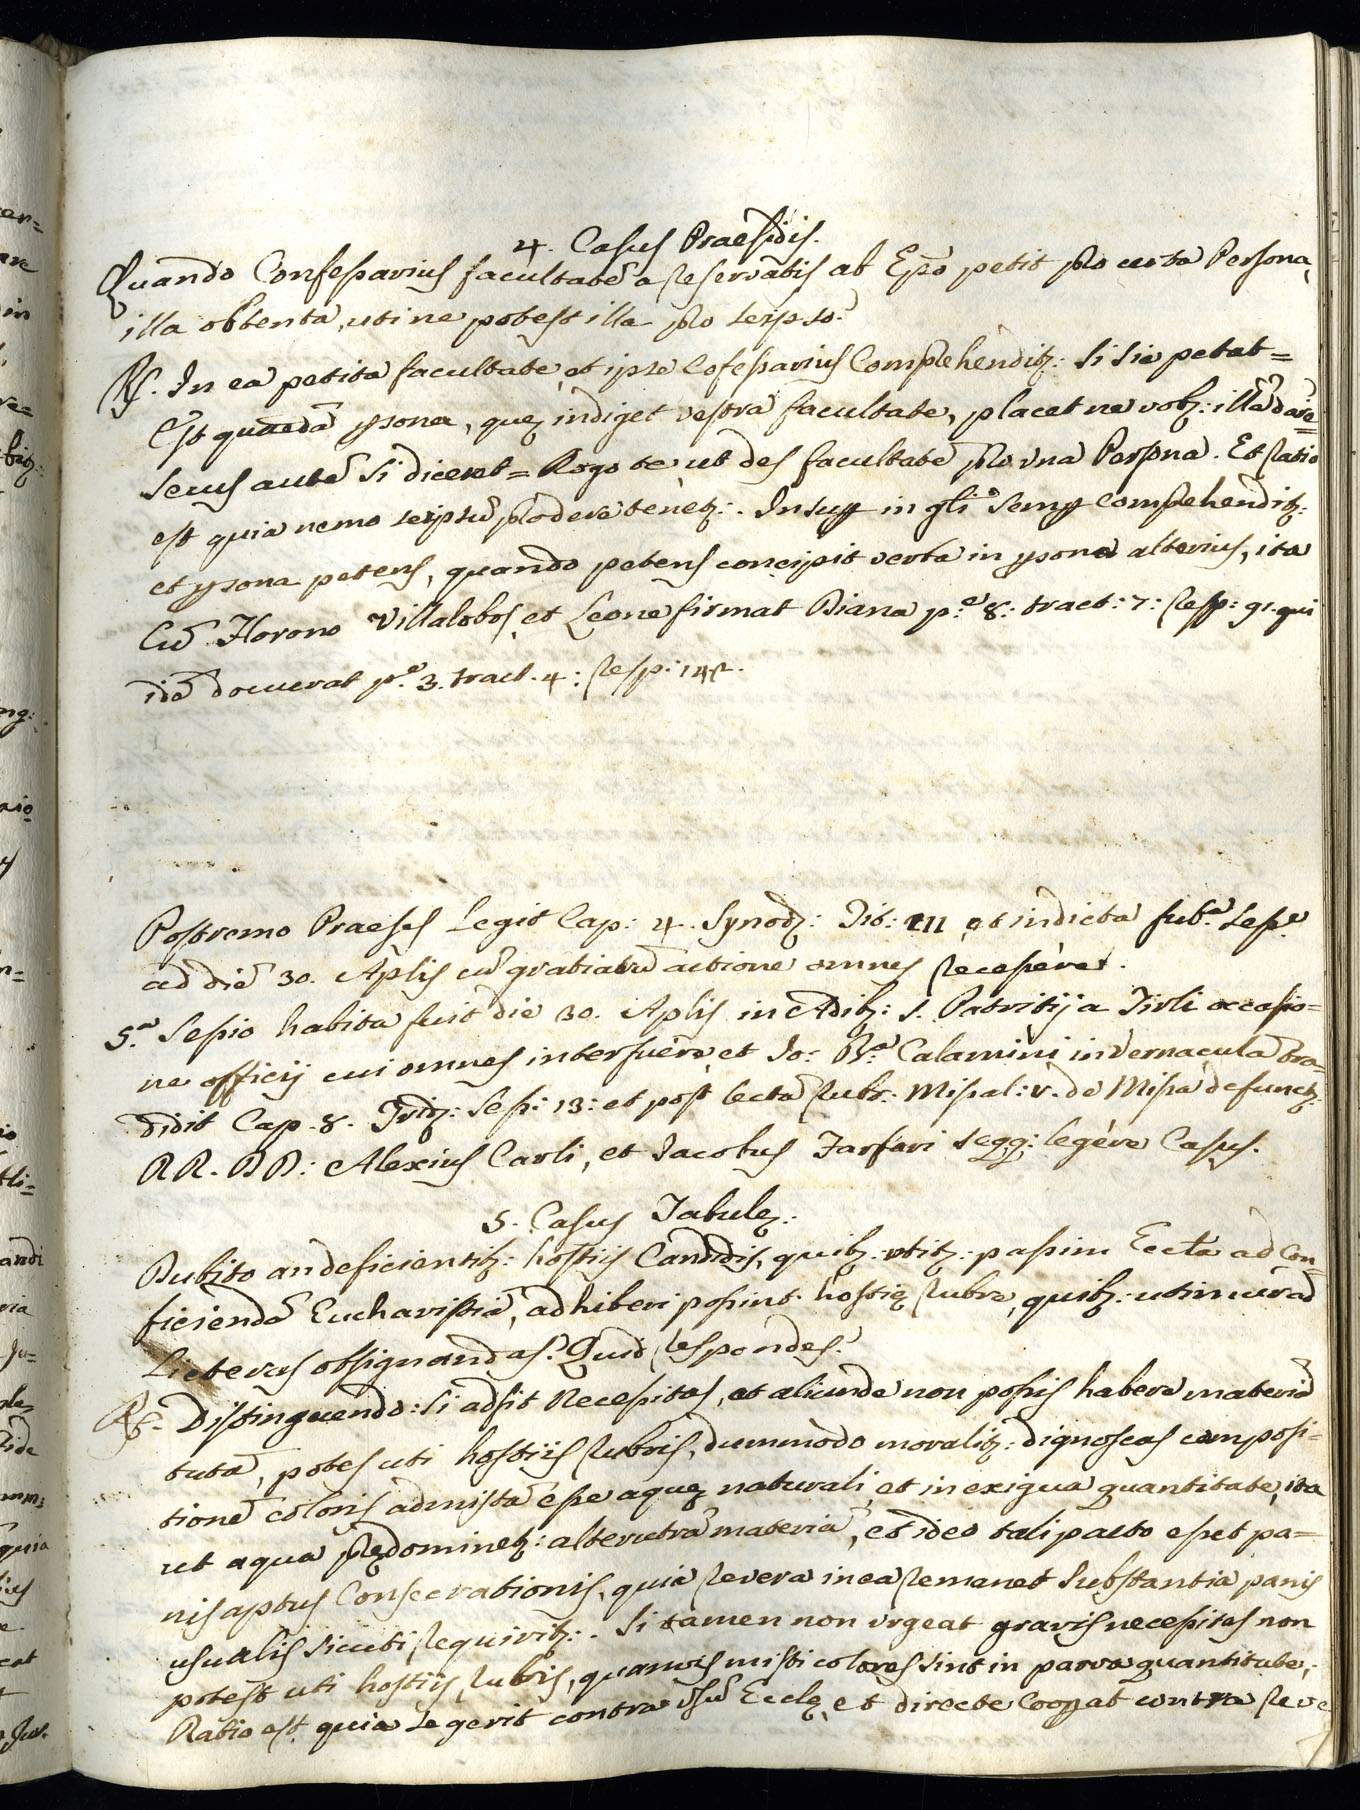 4. Casus Praesidis.
Quando Confessarius facultatē a reservatis ab Epō petit pro certa Persona,
illa obtenta, utine potest illa pro seipso?
R. In ea petita facultate, et ipse Cōfessarius Comprehenditʒ: si sic petat=
Est quaedā psona, quę indiget vestra facultate, placet ne vobʒ: illā dare=
secus autē si diceret= Rogo te ut des facultatē pro una Persona. Et Ratio
est quia nemo seipsū prodere tenetʒ:. Insup in gli semp comprehenditʒ:
et psona petens, quando petens concipit verba in psona alterius, ita
Cū Horono Villalobos, et Leone firmat Diana p.ᵉ 8: tract: 7: resp: 91. qui
idē docuerat p.ᵉ 3. tract. 4: resp: 142.
Postremo Praeses Legit Cap: 4. Synodʒ: Tit: III et indicta sub.ᵃ Sess.ᵉ
ad diē 30. Aplis cū gratiarū actione omnes recessère.
5.ᵃ Sessio habita fuit die 30. Aplis in Ædibʒ: S. Patritij a Tirli occasio=
ne officij cui omnes interfuère, et Jo: B.ᵃ Calamini in vernaculā tra=
didit Cap. 8. Tridʒ: Sess: 13: et post lectā rubr: Missal: V. de Missa defunctʒ:
RR. DD: Alexius Carli, et Jacobus Farfari seqq: legère Casus.
5. Casus Tabulę:
Dubito an deficientibʒ: hostijs Candidis, quibʒ: utitʒ: passim Eccla ad Con=
ficiendā Eucharistiā, adhiberi possint hostię rubre, quibʒ: utimur ad
Litteras obsignandas? Quid respondes?
R. Distinguendo: si adsit Necessitas, et aliunde non possis habere materiā
tutā, potes uti hostijs rubris, dummòdo moralitʒ: dignoscas composi=
tionē coloris admistā esse aquę naturali, et in exigua quantitate, ita
ut aqua prędominetʒ: alterutrā materiā, et ideo tali pacto esset pa=
nis aptus Consecrationis, quia revera in ea remanet substantia panis
usualis sicuti requiritʒ:. Si tamen non urgeat gravis necessitas non
potest uti hostijs rubris, quamvis misti colores sint in parva quantitate;
Ratio est quia se gerit contra usū Ecclę, et directe Coopat contra reve